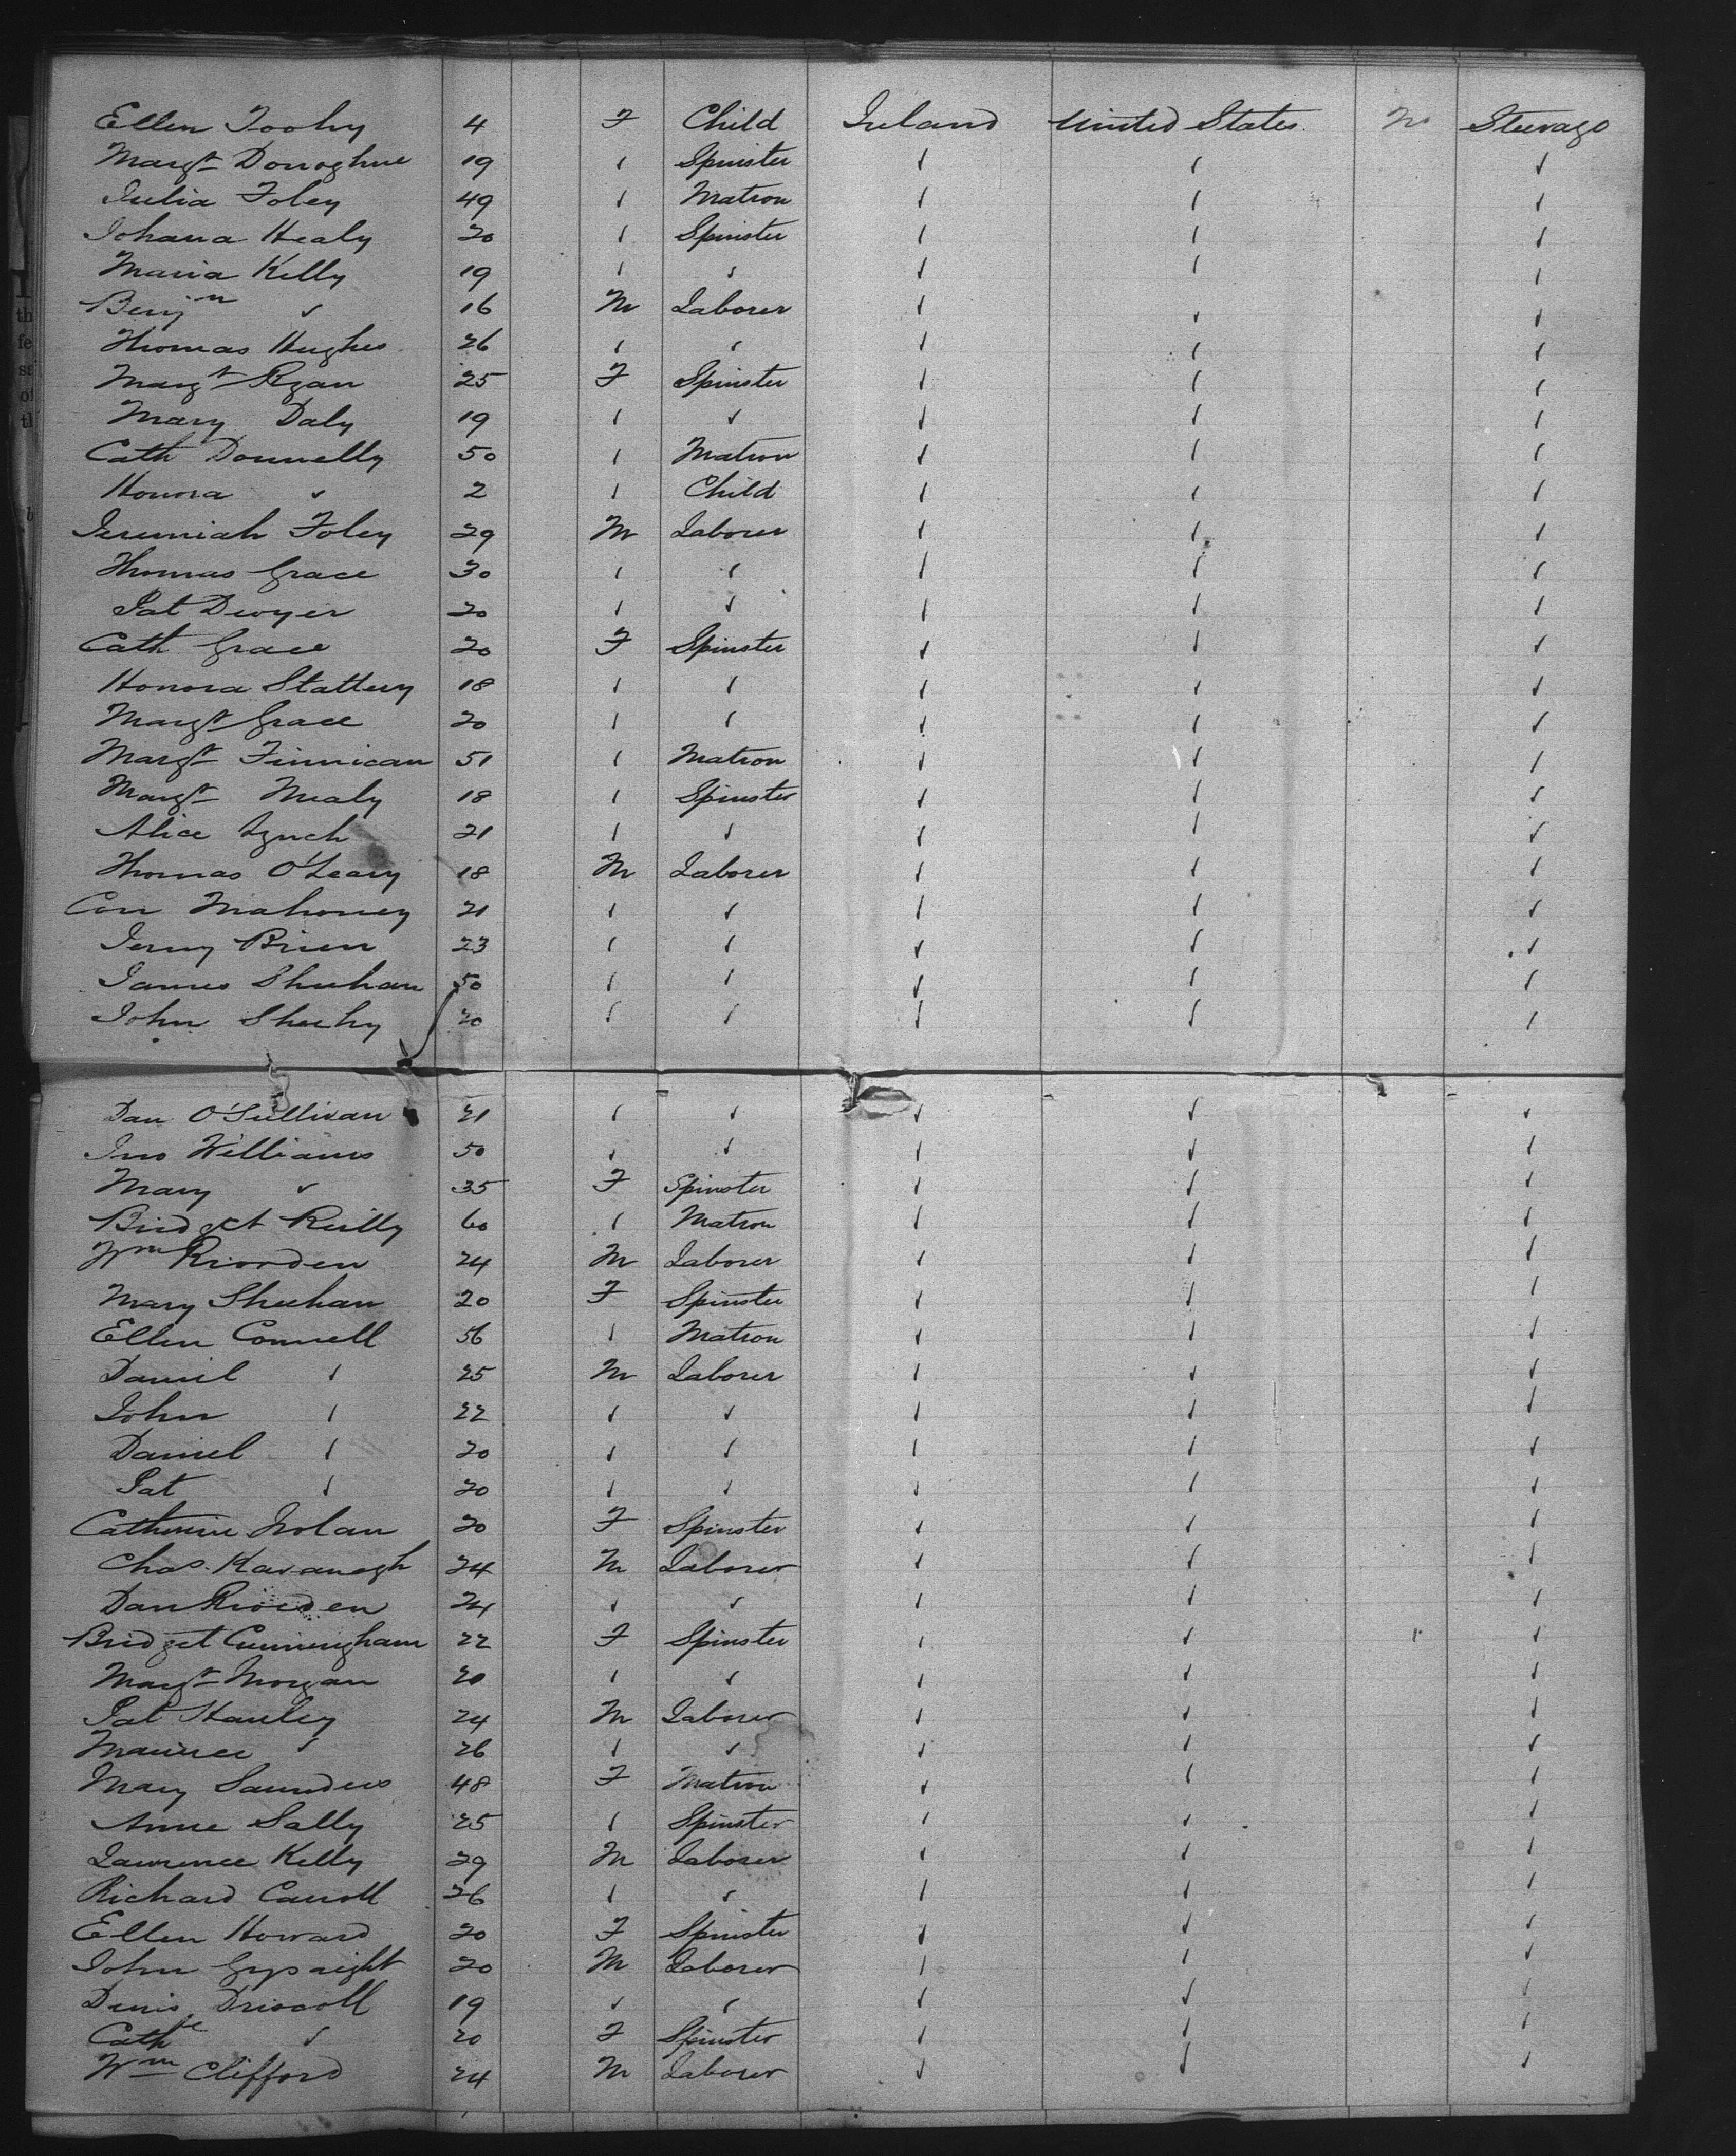 Ellen Toohy 4 F Child Ireland United States No Steerage
Margt Donoghue 19 ✓ Spinster ✓ ✓ ✓
Julia Foley 49 ✓ Matron ✓ ✓ ✓
Johana Healy 20 ✓ Spinster ✓ ✓ ✓
Maria Kelly 19 ✓ ✓ ✓ ✓ ✓
Benjn ✓ 16 M Laborer ✓ ✓ ✓
Thomas Hughes 26 ✓ ✓ ✓ ✓ ✓
Margt Ryan 25 F Spinster ✓ ✓ ✓
Mary Daly 19 ✓ ✓ ✓ ✓ ✓
Cath Donnelly 50 ✓ Matron ✓ ✓ ✓
Honora ✓ 2 ✓ Child ✓ ✓ ✓
Jeremiah Foley 29 M Laborer ✓ ✓ ✓
Thomas Grace 30 ✓ ✓ ✓ ✓ ✓
Pat Dwyer 20 ✓ ✓ ✓ ✓ ✓
Cath Grace 20 F Spinster ✓ ✓ ✓
Honora Slattery 18 ✓ ✓ ✓ ✓ ✓
Margt Grace 20 ✓ ✓ ✓ ✓ ✓
Margt Finnican 51 ✓ Matron ✓ ✓ ✓
Margt Mealy 18 ✓ Spinster ✓ ✓ ✓
Alice Lynch 21 ✓ ✓ ✓ ✓ ✓
Thomas O'Leary 18 M Laborer ✓ ✓ ✓
Con Mahoney 21 ✓ ✓ ✓ ✓ ✓
Jerry Brien 23 ✓ ✓ ✓ ✓ ✓
James Sheehan 50 ✓ ✓ ✓ ✓ ✓
John Sheehy 20 ✓ ✓ ✓ ✓ ✓
Dan O'Sullivan 21 ✓ ✓ ✓ ✓ ✓
Jno Williams 50 ✓ ✓ ✓ ✓ ✓
Mary ✓ 35 F Spinster ✓ ✓ ✓
Bridget Reilly 60 ✓ Matron ✓ ✓ ✓
Wm Riorden 24 M Laborer ✓ ✓ ✓
Mary Sheehan 20 F Spinster ✓ ✓ ✓
Ellen Connell 56 ✓ Matron ✓ ✓ ✓
Daniel ✓ 25 M Laborer ✓ ✓ ✓
John ✓ 22 ✓ ✓ ✓ ✓ ✓
Daniel ✓ 20 ✓ ✓ ✓ ✓ ✓
Pat ✓ 20 ✓ ✓ ✓ ✓ ✓
Catherine Nolan 20 F Spinster ✓ ✓ ✓
Chas. Kavanagh 24 M Laborer ✓ ✓ ✓
Dan Riorden 24 ✓ ✓ ✓ ✓ ✓
Bridget Cunningham 22 F Spinster ✓ ✓ ✓
Margt Morgan 20 ✓ ✓ ✓ ✓ ✓
Pat Hanley 24 M Laborer ✓ ✓ ✓
Maurice ✓ 26 ✓ ✓ ✓ ✓ ✓
Mary Saunders 48 F Matron ✓ ✓ ✓
Anne Sally 25 ✓ Spinster ✓ ✓ ✓
Lawrence Kelly 29 M Laborer ✓ ✓ ✓
Richard Carroll 26 ✓ ✓ ✓ ✓ ✓
Ellen Howard 20 F Spinster ✓ ✓ ✓
John Gypsight 20 M Laborer ✓ ✓ ✓
Denis Driscoll 19 ✓ ✓ ✓ ✓ ✓
Cathe ✓ 20 F Spinster ✓ ✓ ✓
Wm Clifford 24 M Laborer ✓ ✓ ✓